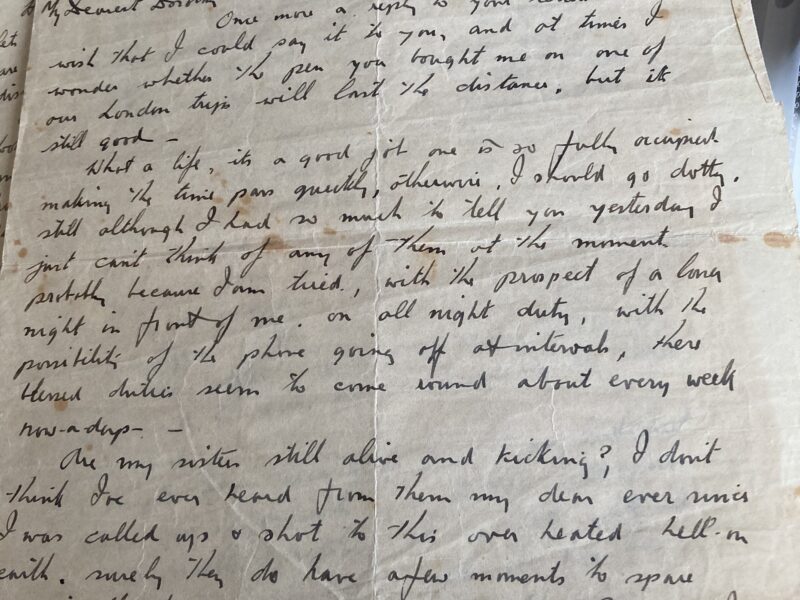 My Dearest Dorothy
Once more a reply to your
wish that I could say it to you, and at times I
wonder whether the pen you bought me on one of
our London trips will last the distance, but its
still good -
What a life, its a good job one is so fully occupied
making the time pass quickly, otherwise, I should go dotty.
still although I had so much to tell you yesterday I
just can't think of any of them at the moment
probably because I am tired, with the prospect of a long
night in front of me. on all night duty, with the
possibility of the phone going off at intervals, these
blessed duties seem to come round about every week
now-a-days- -
Are my sisters still alive and kicking?, I don't
think I've ever heard from them my dear ever since
I was called up & shot to this over heated hell-on
earth. surely they do have a few moments to spare